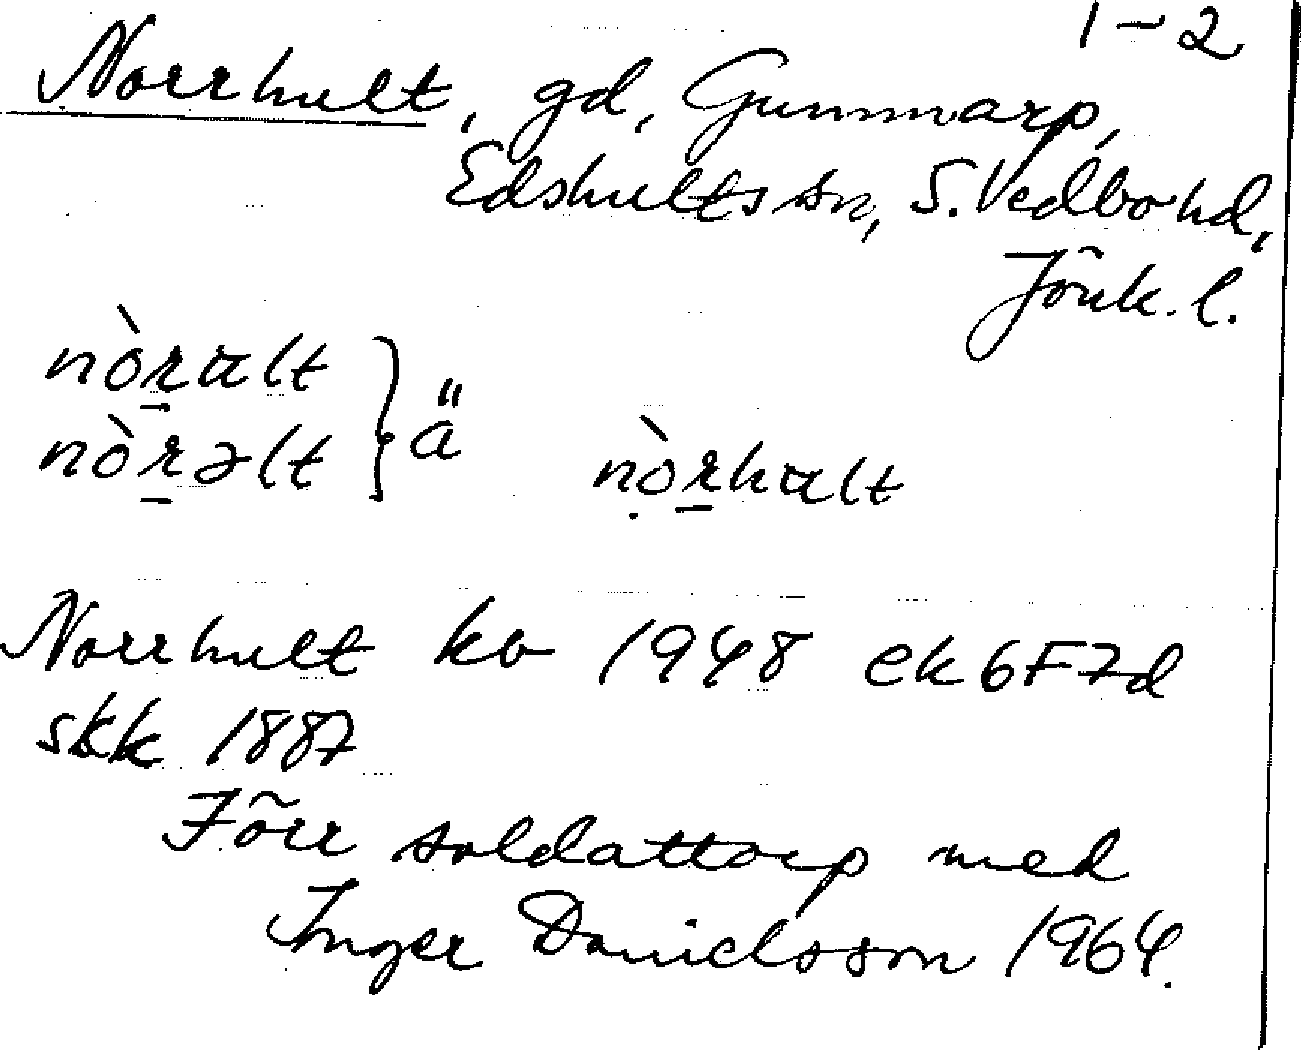 1-2
Norrhult, gd, Gummarp,
Edshults sn, S. Vedbo hd,
Jönk. l.
nòr̲ult
nòr̲əlt } ä ṇòr̲hult
Norrhult kv 1948 ek 6F7d
skk 1887
Förr soldattorp med
Inger Danielsson 1964.